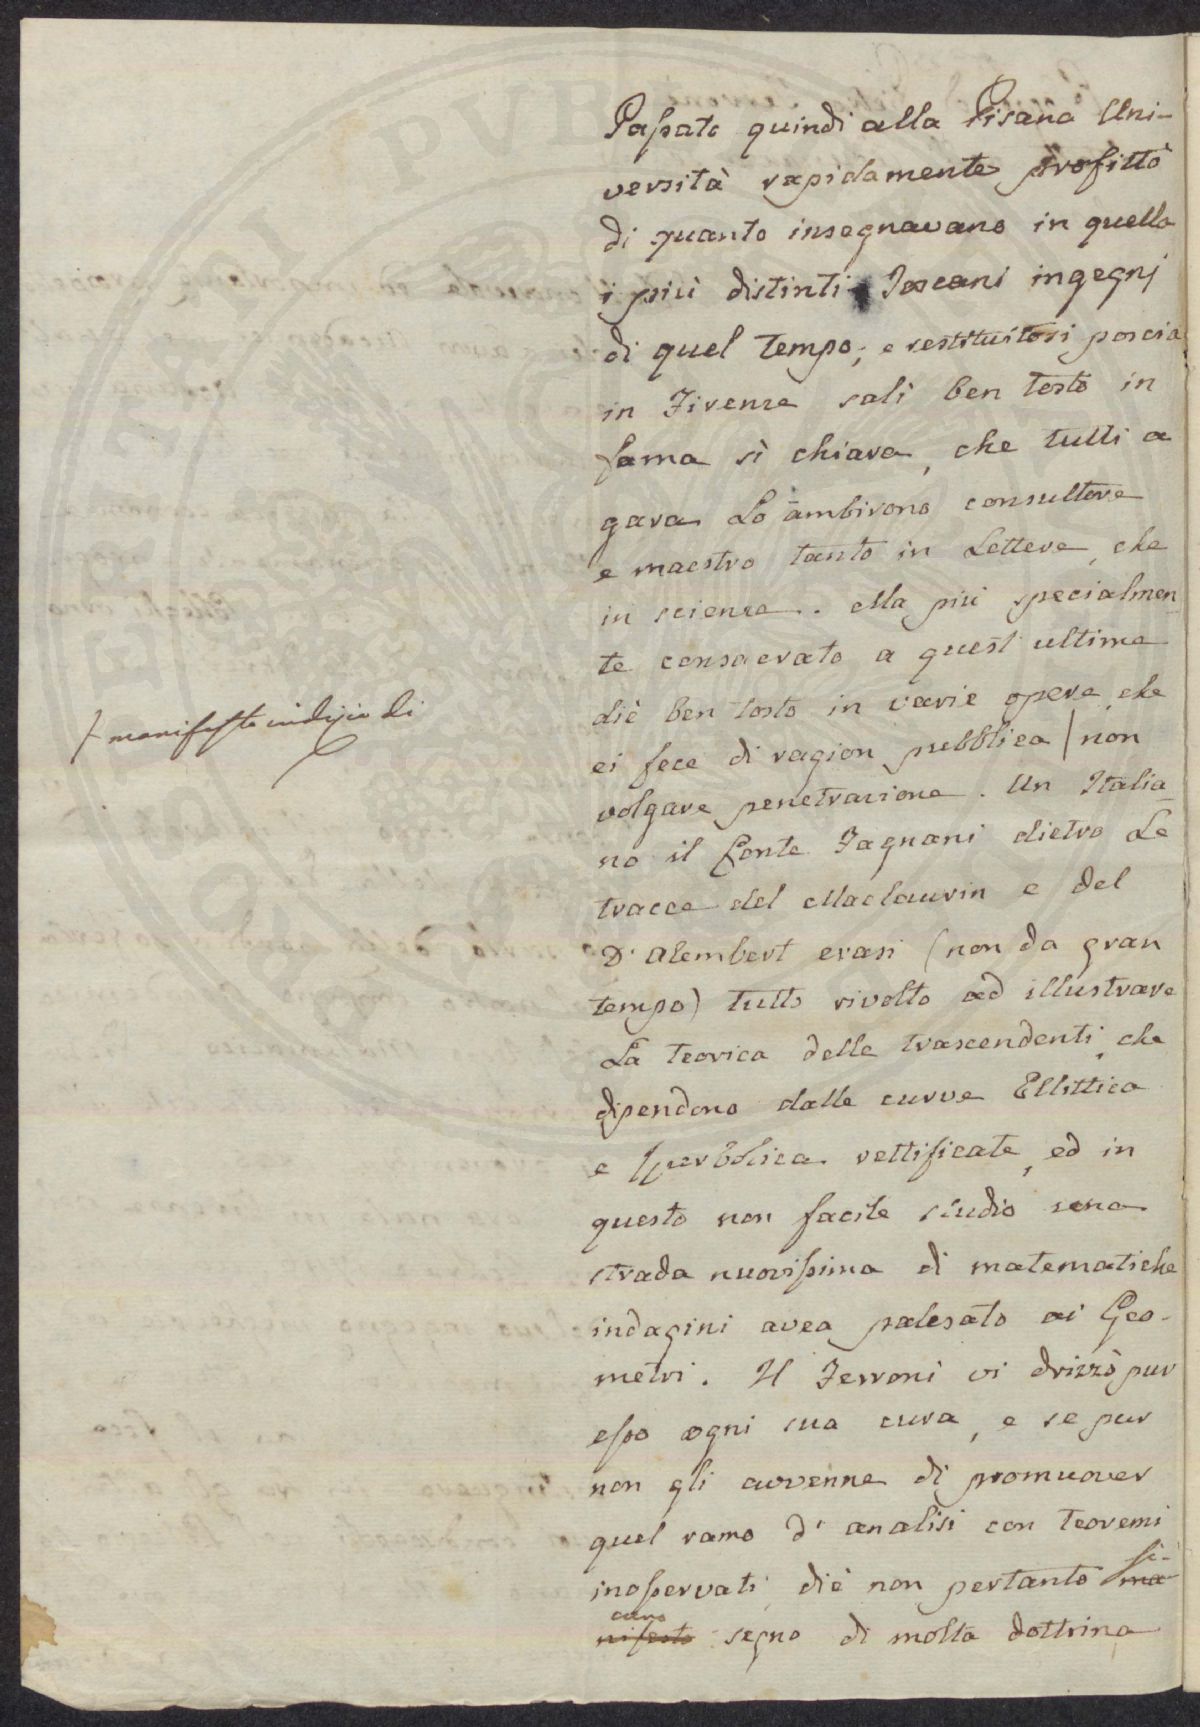 Passato quindi alla Pisana Uni-
versità rapidamente profittò
di quanto insegnavano in quella
i più distinti Toscani ingegnj
di quel tempo; e restituitosi poscia
in Firenze salì ben tosto in
fama sì chiara, che tutti a
gara Lo ambirono consultore
e maestro tanto in Lettere, che
in scienze. Ma più specialmen
te consacrato a quest'ultime
diè ben tosto in varie opere, che
ei fece di ragion pubblica / non
/ manifesto indizio di
volgare penetrazione. Un Italia
no il Conte Fagnani dietro Le
tracce del Maclaurin e del
D'Alembert erasi (non da gran
tempo) tutto rivolto ad illustrare
La teorica delle trascendenti, che
dipendono dalle curve Ellittica
e Iperbolica rettificate, ed in
questo non facile studio una
strada nuovissima di matematiche
indagini avea palesato ai Geo-
metri. Il Ferroni vi drizzò pur
esso ogni sua cura, e se pur
non gli avvenne di promuover
quel ramo d'analisi con teoremi
inosservati, diè non pertanto ma si-
nifesto curo segno di molta dottrina